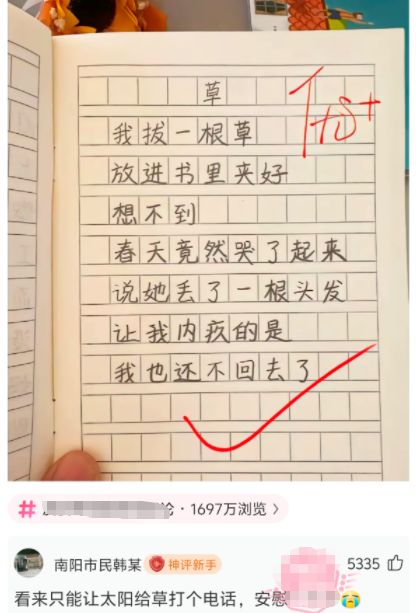 草
优+
我拔一根草
放进书里夹好
想不到
春天竟然哭了起来
说她丢了一根头发
让我内疚的是
我也还不回去了
论·1697万浏览
南阳市民韩某
神评新手
5335
看来只能让太阳给草打个电话，安慰